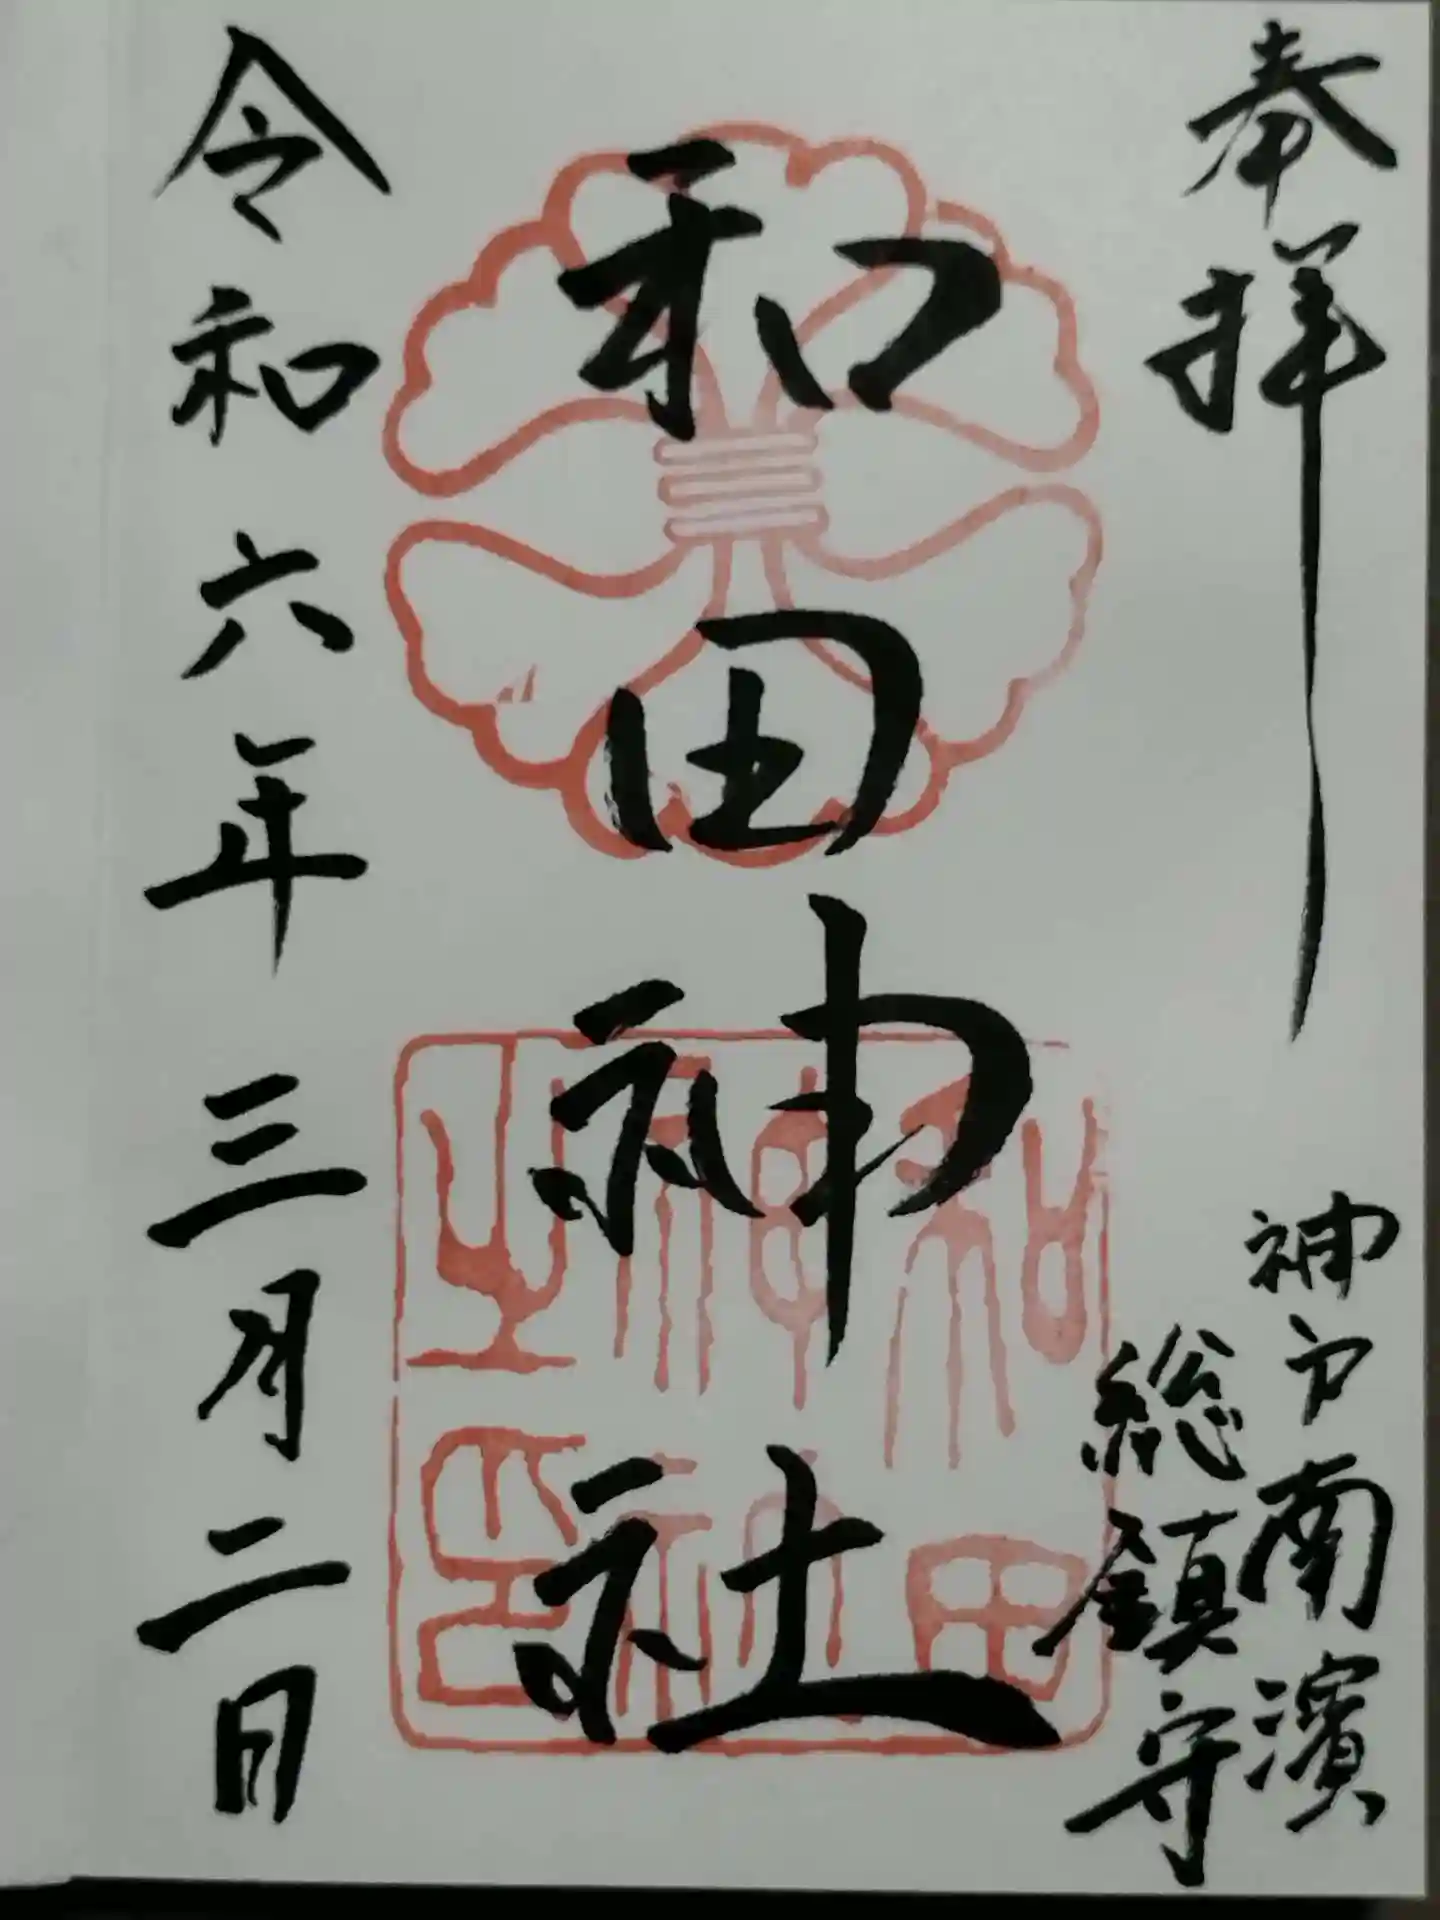 奉拝
神戸南濱
総鎮守
和田神社
和田神社之印
令和六年三月二日